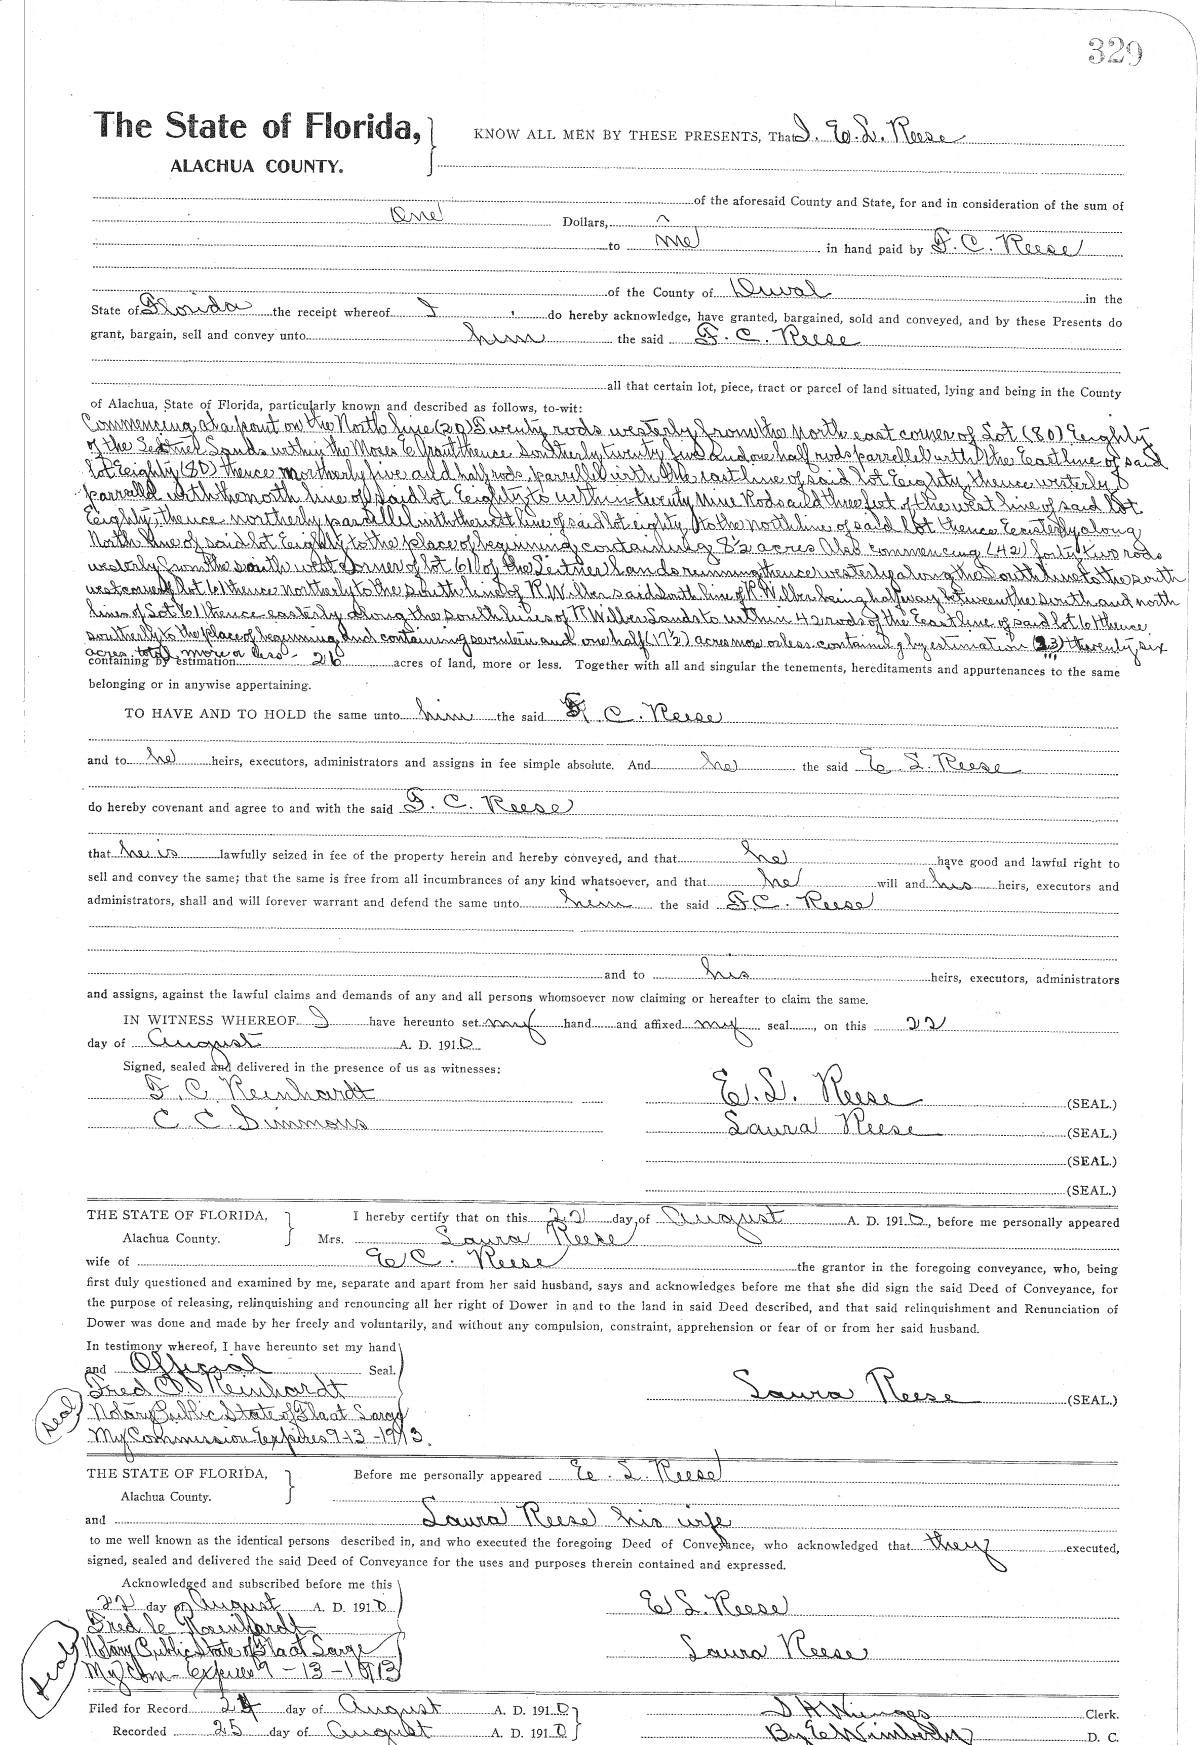 329
The State of Florida, KNOW ALL MEN BY THESE PRESENTS, That I. E. L. Reese
ALACHUA COUNTY.
of the aforesaid County and State, for and in consideration of the sum of
One Dollars,
to me in hand paid by F. C. Reese
of the County of Duval in the
State of Florida the receipt whereof I do hereby acknowledge, have granted, bargained, sold and conveyed, and by these Presents do
grant, bargain, sell and convey unto him the said F. C. Reese
all that certain lot, piece, tract or parcel of land situated, lying and being in the County
of Alachua, State of Florida, particularly known and described as follows, to-wit:
Commencing at a point on the North line (20) Twenty rods westerly from the North east corner of Lot (80) Eighty
of the Lands within the Moses E thence Southerly twenty five and one half rods parrellel with the East line of said
lot Eeighty (80) thence northerly five and half rods, parrellel with the east line of said lot Eeighty, thence westerly
parrallel with the north line of said lot Eeighty to within twenty Nine Rods and three feet of the west line of said lot
Eeighty; thence northerly parallel with the west line of said lot eighty to the north line of said lot thence Easterly along
North line of said lot Eeighty to the place of beginning containing 8½ acres Also commencing (42) forty two rods
westerly from the south west corner of lot 61 of the Leitner Lands running thence westerly along the South line to the south
west corner of lot 61 thence northerly to the south line of R. Wilber said South line of R. Wilber being half way between the south and north
lines of Lot 61 thence easterly along the south lines of R Wilber Lands to within 42 rods of the East line of said lot 61 thence
southerly to the place of beginning and containing seventeen and one half (17½) acres more or less. containing by estimation (23) twenty six
acres, total, more or less -
containing by estimation 26 acres of land, more or less. Together with all and singular the tenements, hereditaments and appurtenances to the same
belonging or in anywise appertaining.
TO HAVE AND TO HOLD the same unto him the said F. C. Reese
and to he heirs, executors, administrators and assigns in fee simple absolute. And he the said E L. Reese
do hereby covenant and agree to and with the said F. C. Reese
that he is lawfully seized in fee of the property herein and hereby conveyed, and that he have good and lawful right to
sell and convey the same; that the same is free from all incumbrances of any kind whatsoever, and that he will and his heirs, executors and
administrators, shall and will forever warrant and defend the same unto him the said F.C. Reese
and to his heirs, executors, administrators
and assigns, against the lawful claims and demands of any and all persons whomsoever now claiming or hereafter to claim the same.
IN WITNESS WHEREOF I have hereunto set my hand and affixed my seal, on this 22
day of August A. D. 1910
Signed, sealed and delivered in the presence of us as witnesses:
F. C. Reinhardt E. L. Reese (SEAL.)
C. C. Simmons Laura Reese (SEAL.)
(SEAL.)
(SEAL.)
THE STATE OF FLORIDA, I hereby certify that on this 22 day of August A. D. 1910, before me personally appeared
Alachua County. Mrs. Laura Reese
wife of E C. Reese the grantor in the foregoing conveyance, who, being
first duly questioned and examined by me, separate and apart from her said husband, says and acknowledges before me that she did sign the said Deed of Conveyance, for
the purpose of releasing, relinquishing and renouncing all her right of Dower in and to the land in said Deed described, and that said relinquishment and Renunciation of
Dower was done and made by her freely and voluntarily, and without any compulsion, constraint, apprehension or fear of or from her said husband.
In testimony whereof, I have hereunto set my hand
and Official Seal.
Fred C Reinhardt Laura Reese (SEAL.)
seal Notary Public State of Fla at Large
My Commission Expires 9-13-1913.
THE STATE OF FLORIDA, Before me personally appeared E. L. Reese
Alachua County.
and Laura Reese his wife
to me well known as the identical persons described in, and who executed the foregoing Deed of Conveyance, who acknowledged that they executed,
signed, sealed and delivered the said Deed of Conveyance for the uses and purposes therein contained and expressed.
Acknowledged and subscribed before me this
22 day of August A. D. 1910 E L. Reese
Fred C Reinhardt
seal Notary Public State of Fla at Large Laura Reese
My Com- Expires 9-13-1913
Filed for Record 24 day of August A. D. 1910 S H Wienges Clerk.
Recorded 25 day of August A. D. 1910 By E Wimberly D. C.